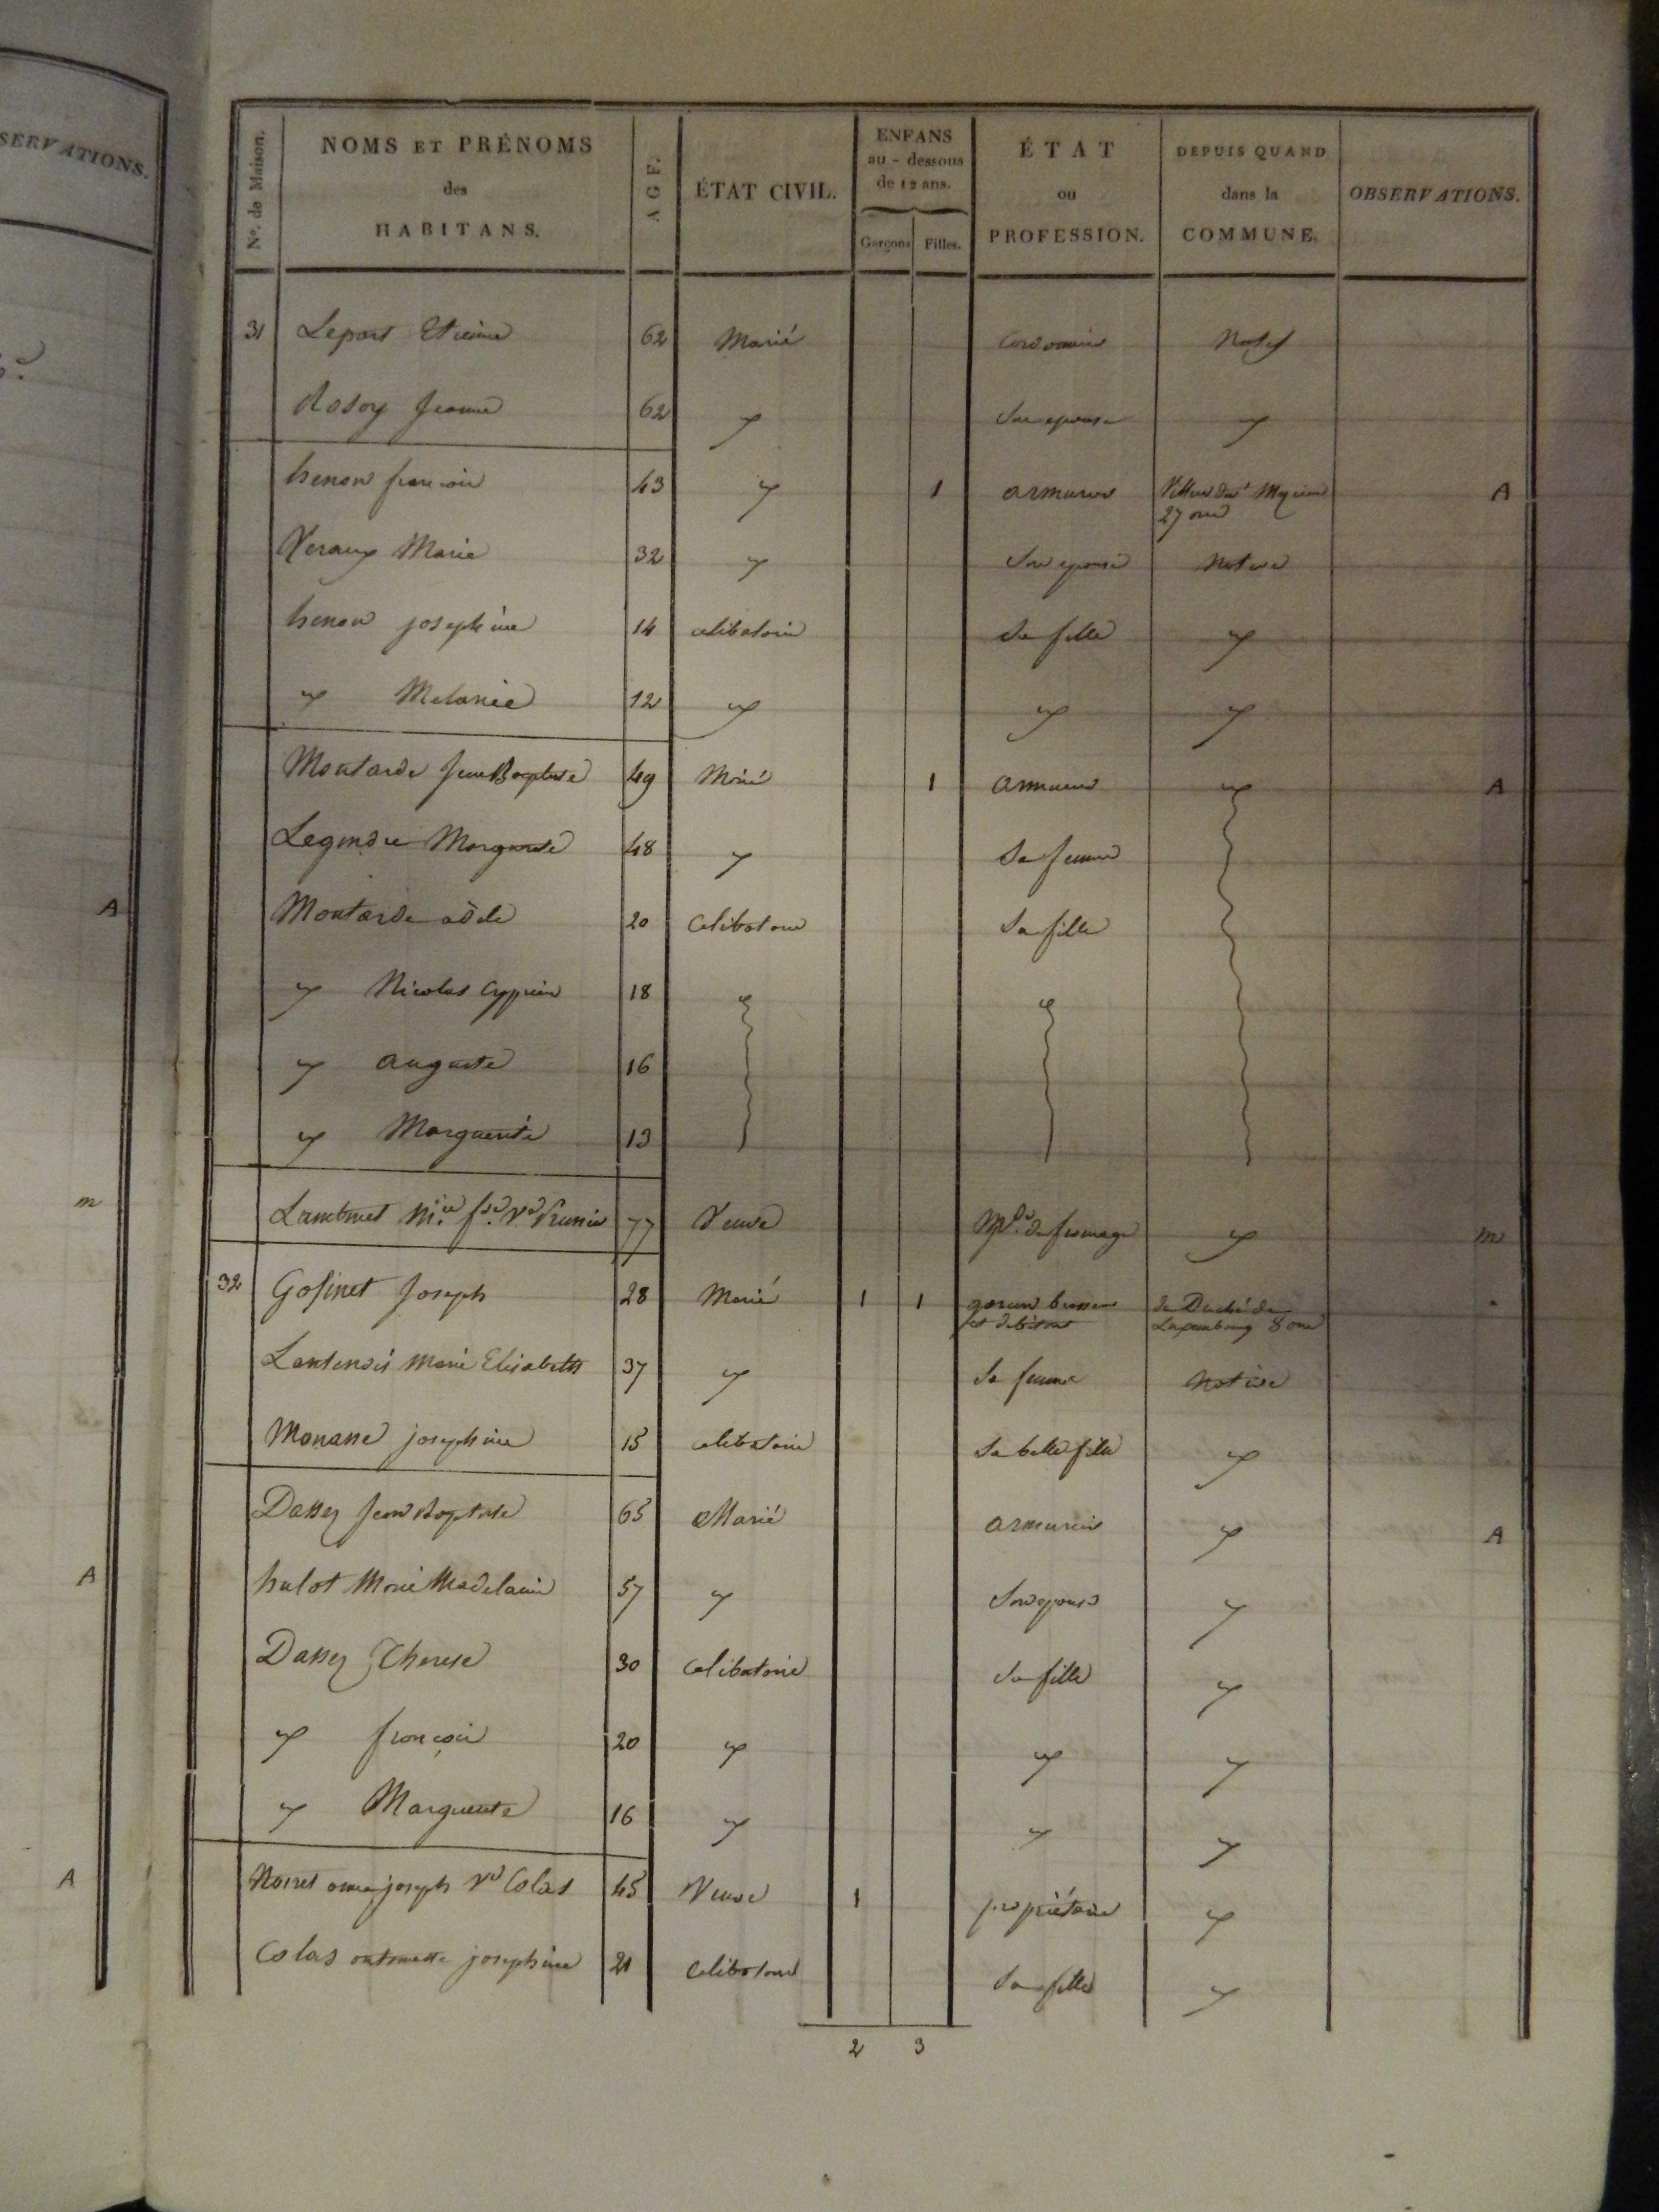 SERVATIONS.
Nº. de Maison. NOMS ET PRÉNOMS des HABITANS. AGE. ÉTAT CIVIL. ENFANS au-dessous de 12 ans. Garçons Filles. ÉTAT ou PROFESSION. DEPUIS QUAND dans la COMMUNE. OBSERVATIONS.
31 Lepart Etienne 62 Marié Cordonnier Natif
Rosoy Jeanne 62 " Son epouse "
henon francois 43 " 1 armurier 27 ans A
Veraux Marie 32 " Son epouse Native
henon josephine 14 celibataire Sa fille "
" Melanie 12 " " "
Moutarde Jean Baptiste 49 Marié 1 armurier " A
Legendre Marguerite 48 " Sa femme
A Moutarde adele 20 Celibataire Sa fille
" Nicolas Cyprien 18 " "
" auguste 16
" Marguerite 13
m Lambinet Mie. fse. Ve 77 Veuve Mde. de fromage " m
32 Gofinet Joseph 28 Marié 1 1 garcon brasseur et debitant du Duché de Luxembourg 8 ans
Marie Elisabeth 37 " Sa femme Native
Manasse josephine 15 celibataire Sa belle fille "
Dassey Jean Baptiste 65 Marié armurier " A
A hulot Marie Madelaine 57 " Son epouse "
Dassey Therese 30 Celibataire Sa fille "
" françois 20 " " "
" Marguerite 16 " " "
A Noiret anne joseph Ve Colas 45 Veuve 1 propriétaire "
Colas antoinette josephine 21 Celibataire Sa fille "
2 3